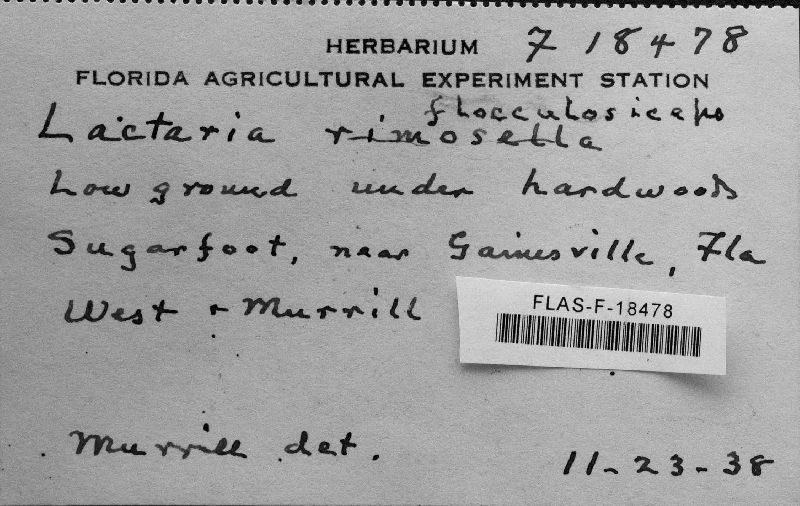 HERBARIUM F 18478
FLORIDA AGRICULTURAL EXPERIMENT STATION
flocculosiceps
Lactaria rimosella
Low ground under hardwoods
Sugarfoot, near Gainesville, Fla
West + Murrill
FLAS-F-18478
Murrill det.
11-23-38